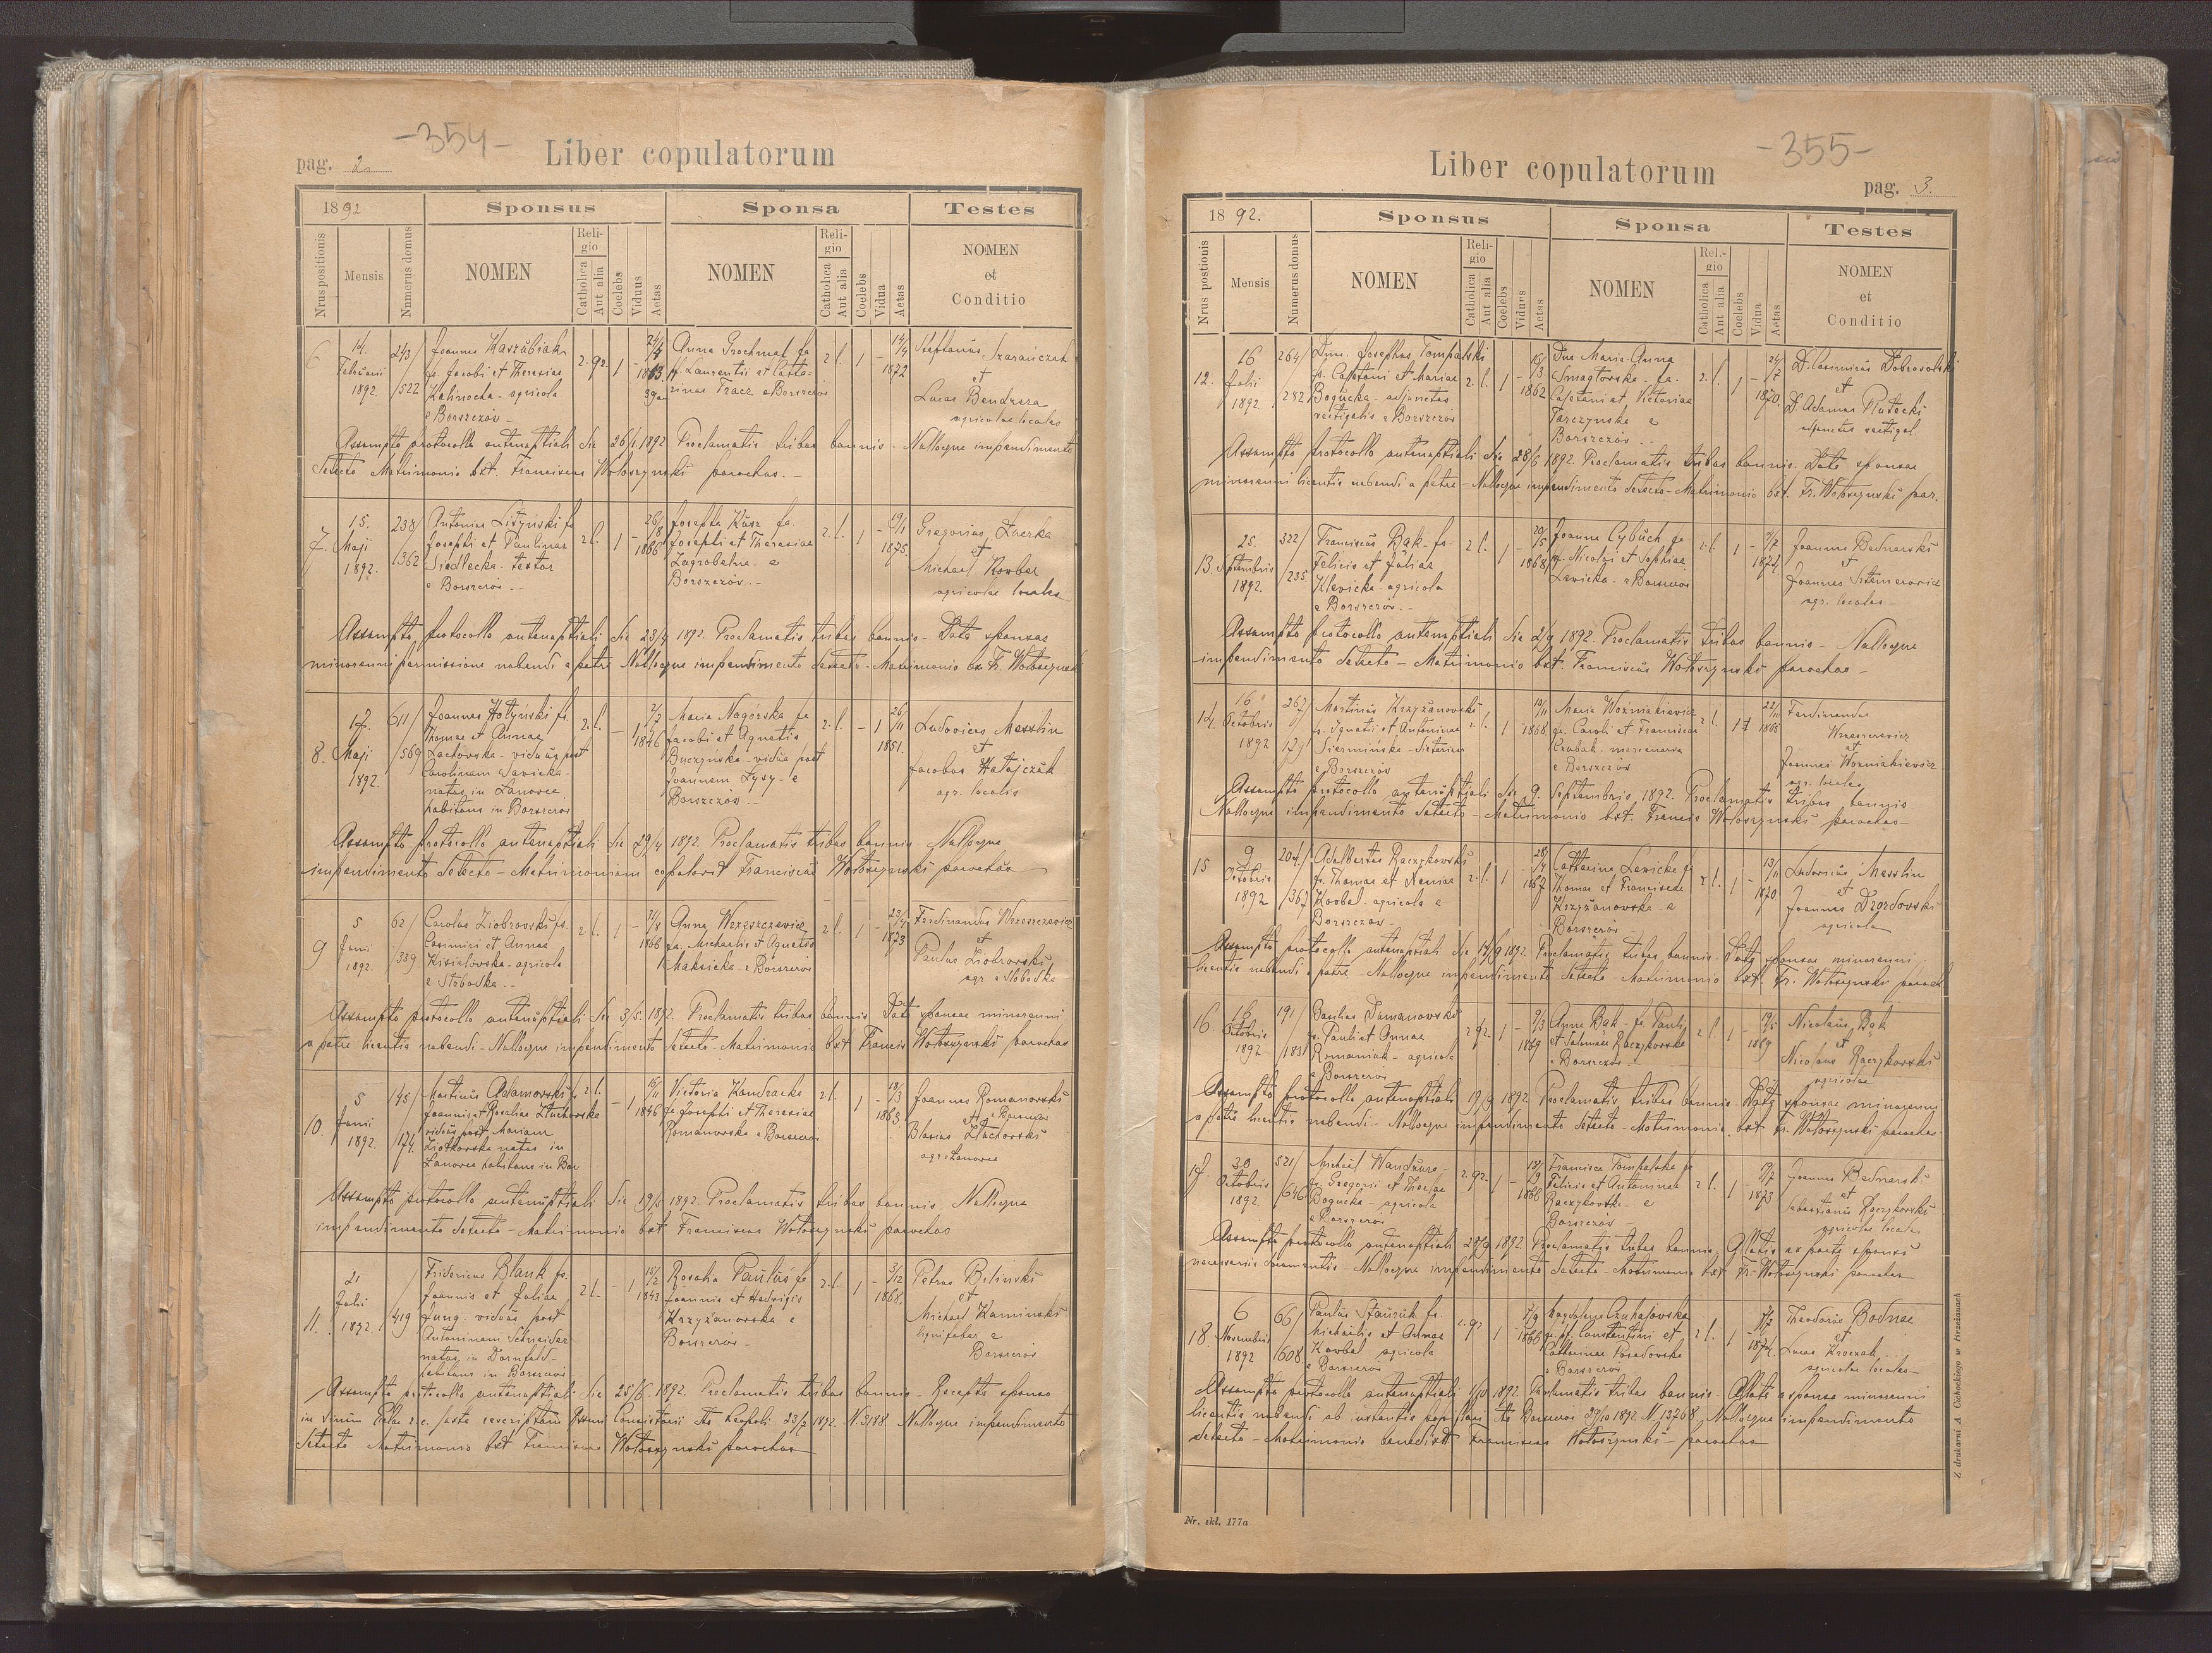 -354-
pag. 2
Liber copulatorum
1892
Sponsus
Sponsa
Testes
Nrus positionis
Mensis
Numerus domus
NOMEN
Religio
Catholica
Aut alia
Coelebs
Viduus
Aetas
NOMEN
Religio
Catholica
Aut alia
Coelebs
Vidua
Aetas
NOMEN
et
Conditio
6
14.
Februarii
1892.
243/
522
Joannes
fs. Jacobi et Theresiae
Kalinocha - agricola
e Borszczów -
1
24/4
39 a
Anna Grochmal fa
Laurentii et Catha-
rinae Tracz e Borszczów
r. l.
1 -
14/4
1872
Stephanus Szaranczak
et
Lucas Bendzera
agricolae locales
Assumpto protocollo antenuptiali die 26/1. 1892 Proclamatis tribus bannis - Nulloque impendimento
detecto Matrimonio bxt. Franciscus Wołoszynski parochus. -
7.
15.
Maji
1892.
238/
362
Antonius Lisżynski fs
Josephi et Paulinae
Siedlecka - textor
e Borszczów - -
r. l.
1 -
26/8
1866
Josepha Kusz fa.
Josephi et Theresiae
Zagrobelna - e
Borszczów. -
r. l.
1 -
19/1
1875.
Gregorius
et
Michael Korbel
agricolae locales
Assumpto protocollo antenuptiali die 23/4 1892. Proclamatis tribus bannis - Data sponsae
minorenni permissione nubendi a patre Nulloque impendimento detecto - Matrimonio bxt Fr. Wołoszynski
8.
17.
Maji
1892.
611/
569
Joannes Hołyński fs.
Thomae et Annae
Lachowska - viduus post
Carolinam Sawicka -
natus in Łanowce
habitans in Borszczów
r. l.
- 1
2/7
1846
Maria Nagórska fa
Jacobi et Agnetis
Buczynska - vidua post
Joannem Łysy - e
Borszczów - -
r. l.
- 1
26/11
1851.
Ludovicus Messlin
et
Jacobus Hałajczuk
agr. localis
Assumpto protocollo antenuptiali die 29/4 1892. Proclamatis tribus bannis - Nulloque
impendimento detecto - Matrimonium copulavit Franciscus Wołoszynski parochus
9
5
Junii
1892.
62/
339
Carolus Ziobrowski fs.
Casimiri et Annae
Kisielowska - agricola
e Słobodka - -
r. l.
1 -
1866
Anna Wrzeszczewicz
fa. Michaelis et Agnetis
Maksicka - e Borszczów
r. l.
1 -
23/4
1873
Ferdinandus Wrzeszczewicz
et
Paulus Ziobrowski
agr. e Słobodka
Assumpto protocollo antenuptiali die 3/5. 1892. Proclamatis tribus bannis Data sponsae minorenni
a patre licentia nubendi - Nulloque impendimento detecto - Matrimonio bxt Francis Wołoszynski parochus
10.
5
Junii
1892.
145/
174.
Martinus Adamowski fs
Joannis et Rosaliae Stachowska
viduus post Mariam
Ziółkowska natus in
Łanowce habitans in Bor
r. l.
- 1
1846
Victoria Kondracka
fa Josephi et Theresiae
Romanowska e Borszczów
r. l.
1 -
19/3
1863.
Joannes Romanowski
et
Blasius Stachowski
agr. e Łanowce
Assumpto protocollo antenuptiali die 19/5 1892. Proclamatis tribus bannis. Nulloque
impendimento detecto - Matrimonio bxt Franciscus Wołoszynski parochus
11.
21
Julii
1892.
419
Fridericus Blank fs.
Joannis et Juliae
Jung. viduus post
Antoninam Schneider
natus in Dornfeld -
habitans in Borszczów
r. l.
- 1
15/2
1843
Rosalia Paulus fa
Joannis et Hedvigis
Krzyżanowska e
Borszczów -
r. l.
1 -
3/12
1868.
Petrus Bilinski
et
Michael Kaminski
lignifaber e
Borszczów
Assumpto protocollo antenuptiali die 25/6. 1892. Proclamatis tribus bannis - Recepto sponso
in sinum Eclae r. c. juxta rescriptum Rssmi Consistorii dto Leopoli 23/7 1892. N. 3188. Nulloque impendimento
detecto Matrimonio bxt Franciscus Wołoszynski parochus
-355-
Liber copulatorum
pag. 3.
1892.
Sponsus
Sponsa
Testes
Nrus postionis
Mensis
Numerus domus
NOMEN
Religio
Catholica
Aut alia
Coelebs
Viduus
Aetas
NOMEN
Religio
Catholica
Aut alia
Coelebs
Vidua
Aetas
NOMEN
et
Conditio
12.
16
Julii
1892.
264/
282
Dnus. Josephus Tompalski
fs. Cajetani et Mariae
Bogucka - adjunctus
vectigalis e Borszczów
r. l.
1 -
1862
Dna Maria Anna
Smagłowska - fa.
Cajetani et Victoriae
Tarczynska e
Borszczów - -
r. l.
1 -
24/7
1870
D. Casimirus Dobrowolski
et
D. Adamus Rutecki
adjunctus vectigal.
Assumpto protocollo antenuptiali die 28/6 1892. Proclamatis tribus bannis. Data sponsae
minorenni licentia nubendi a patre - Nulloque impendimento detecto - Matrimonio bxt. Fr. Wołoszynski par.
13.
25.
Septembris
1892.
322/
235.
Franciscus Bąk - fs.
Felicis et Juliae
Klewicka - agricola
e Borszczów. -
r. l.
1 -
20/5
1868
Joanna Cybuch fa
Nicolai et Sophiae
Lewicka - e Borszczów
r. l.
1 -
1872
Joannes Bednarski
et
Joannes
agr. locales -
Assumpto protocollo antenuptiali die 2/9 1892. Proclamatis tribus bannis - Nulloque
impendimento detecto - Matrimonio bxt. Franciscus Wołoszynski parochus -
14.
16
Octobris
1892
267/
129
Martinus Krzyżanowski
fs. Ignatii et Antoninae
Siermińska -
e Borszczów
r. l.
1 -
19/11
1868
Maria Wozniakiewicz
fa. Caroli et Franciscae
e Borszczów
r. l.
22/11
1865
Ferdinandus
Wrzeszczewicz
et
Joannes Wozniakiewicz
agr. locales
Assumpto protocollo antenuptiali die 9. Septembris 1892. Proclamatis tribus bannis
Nulloque impendimento detecto - Matrimonio bxt. Francis Wołoszynski parochus -
15
9
Octobris
1892
204/
367
Adalbertus Raczykowski
fs. Thomae et
Korbel - agricola e
Borszczów -
r. l.
1 -
28/4
1867
Catharina Lewicka fa
Thomae et Franciscae
Krzyżanowska - e
Borszczów
r. l.
1 -
13/11
1870
Ludovicus Messlin
et
Joannes Drozdowski
agricolae
Assumpto protocollo antenuptiali die 14/9 1892. Proclamatis tribus bannis - Data sponsae minorenni
licentia nubendi a patre - Nulloque impendimento detecto - Matrimonio bxt Fr. Wołoszynski paroch
16.
16
Octobris
1892
191/
183
Basilius Damanowski
fs. Pauli et Annae
Romaniak - agricola
e Borszczów
1 -
9/3
1869
Anna Bąk - fa. Pauli
et Salomeae Raczykowska
e Borszczów
r. l.
1 -
19/5
1869
Nicolaus Bąk
et
Nicolaus Raczykowski
agricolae
Assumpto protocollo antenuptiali 19/9 1892 Proclamatis tribus bannis - Data sponsae minorenni
a patre licentia nubendi - Nulloque impendimento detecto - Matrimonio bxt Fr. Wołoszynski parochus
17.
30
Octobris
1892
521/
646
Michael Wandzura -
fs. Gregorii et Theclae
Bogucka - agricola
e Borszczów
1 -
18/9
Francisca Tompalska fa
Felicis et Antoninae
Raczykowska - e
Borszczów
r. l.
1 -
1873
Joannes Bednarski
et
Sebastianus Raczykowski
agricolae locales
Assumpto protocollo antenuptiali 28/9 1892. Proclamatis tribus bannis, Allatis ex parte sponsi
necessariis documentis - Nulloque impendimento detecto - Matrimonio bxt Fr. Wołoszynski parochus
18.
6
Novembris
1892
66/
608
Paulus Stasiuk fs.
Michaelis et Annae
Korbel agricola
e Borszczów
1 -
1866
Magdalena Czuhajowska
fa. pf. Constantini et
Catharinae Posadowska
e Borszczów
r. l.
1 -
1874.
Theodorus Bodnar
et
Lucas Kroczak
agricolae locales -
Assumpto protocollo antenuptiali 1892. Proclamatis tribus bannis - Allata a sponsae minorenni
licentia nubendi ab instantia pupillari dto Borszczów 29/10 1892. N. 13768, Nulloque impendimento
detecto - Matrimonio benedixit Franciscus Wołoszynski - parochus
Nr. skł. 177a
Z drukarni A. Cachockiego w Brzeżanach